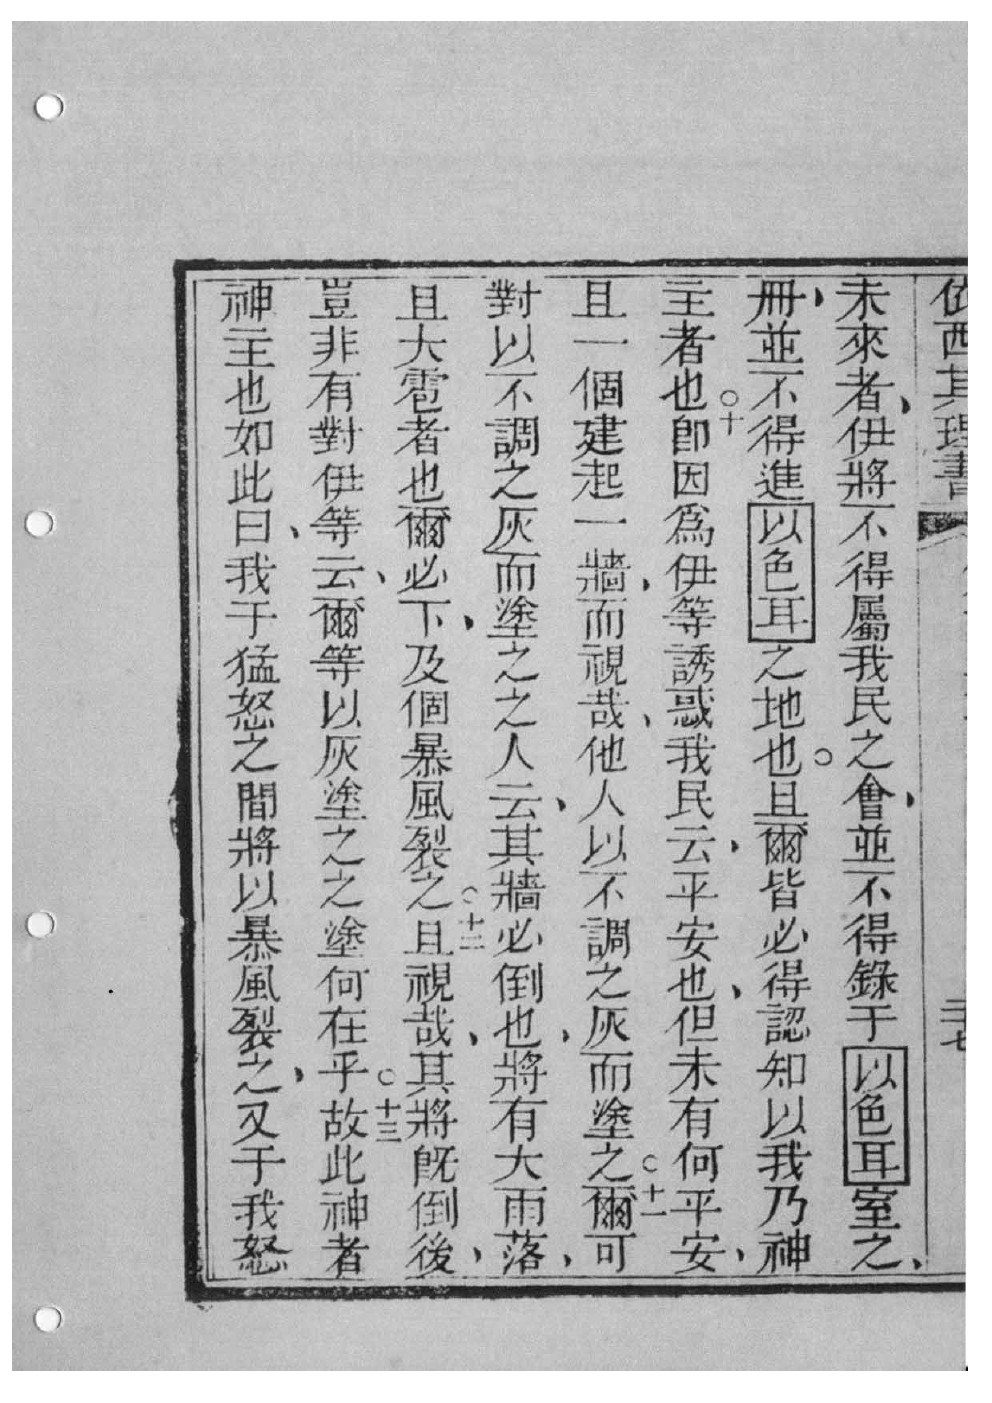 西其理書
未來者、伊將不得屬我民之會、並不得錄于以色耳室之、
冊、並不得進以色耳之地也。且爾皆必得認知以我乃神
主者也○十卽因爲伊等誘惑我民云、平安也、但未有何平安、
且一個建起一牆、而視哉、他人以不調之灰而塗之○十一爾可
對以不調之灰而塗之之人云、其牆必倒也、將有大雨落、
且大雹者也爾必下、及個暴風裂之○十二且視哉、其將旣倒後、
豈非有對伊等云、爾等以灰塗之之塗何在乎○十三故此神者
神主也如此曰、我于猛怒之間將以暴風裂之、又于我怒